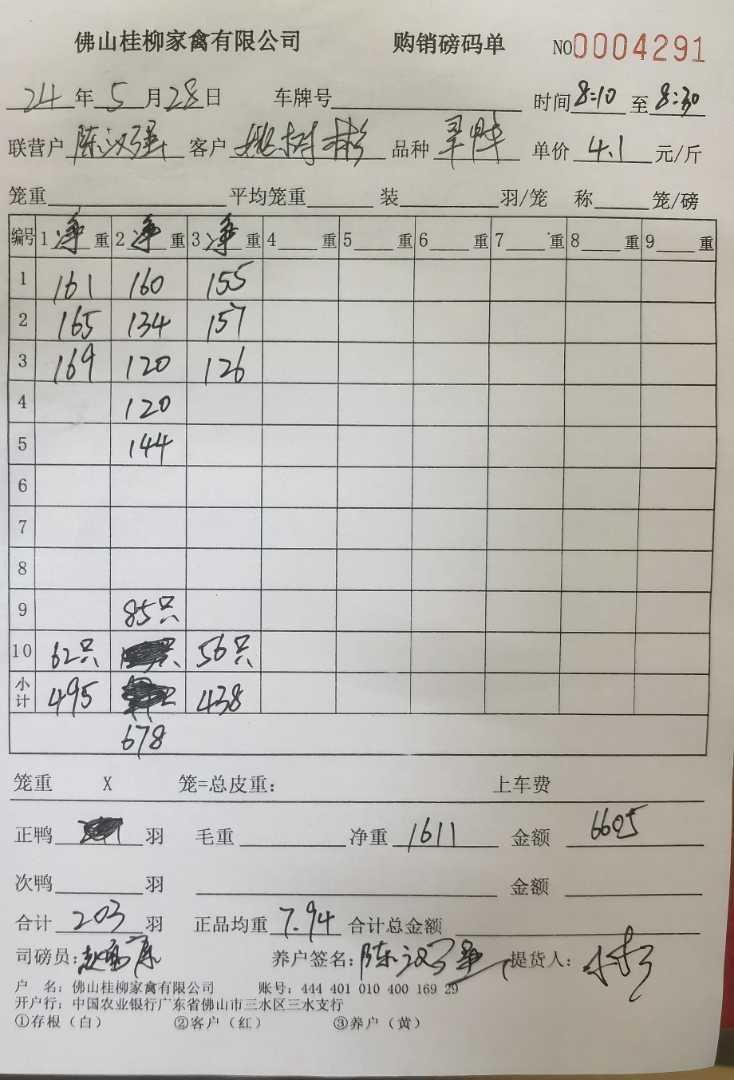 佛山桂柳家禽有限公司 购销磅码单 NO0004291
24年5月28日 车牌号 时间8:10至8:30
联营户 陈汉强 客户 姚树彬 品种 单价 4.1 元/斤
笼重 平均笼重 装 羽/笼 称 笼/磅
编号 1净重 2净重 3净重 4 重 5 重 6 重 7 重 8 重 9 重
1 161 160 155
2 165 134 157
3 169 120 126
4 120
5 144
6
7
8
9 85只
10 62只 56只
小计 495 438
678
笼重 X 笼=总皮重: 上车费
正鸭 羽 毛重 净重 1611 金额 6605
次鸭 羽 金额
合计 203 羽 正品均重 7.94 合计总金额
司磅员: 养户签名: 陈汉强 提货人:
户 名: 佛山桂柳家禽有限公司 账号: 444 401 010 400 169 29
开户行: 中国农业银行广东省佛山市三水区三水支行
①存根(白) ②客户(红) ③养户(黄)